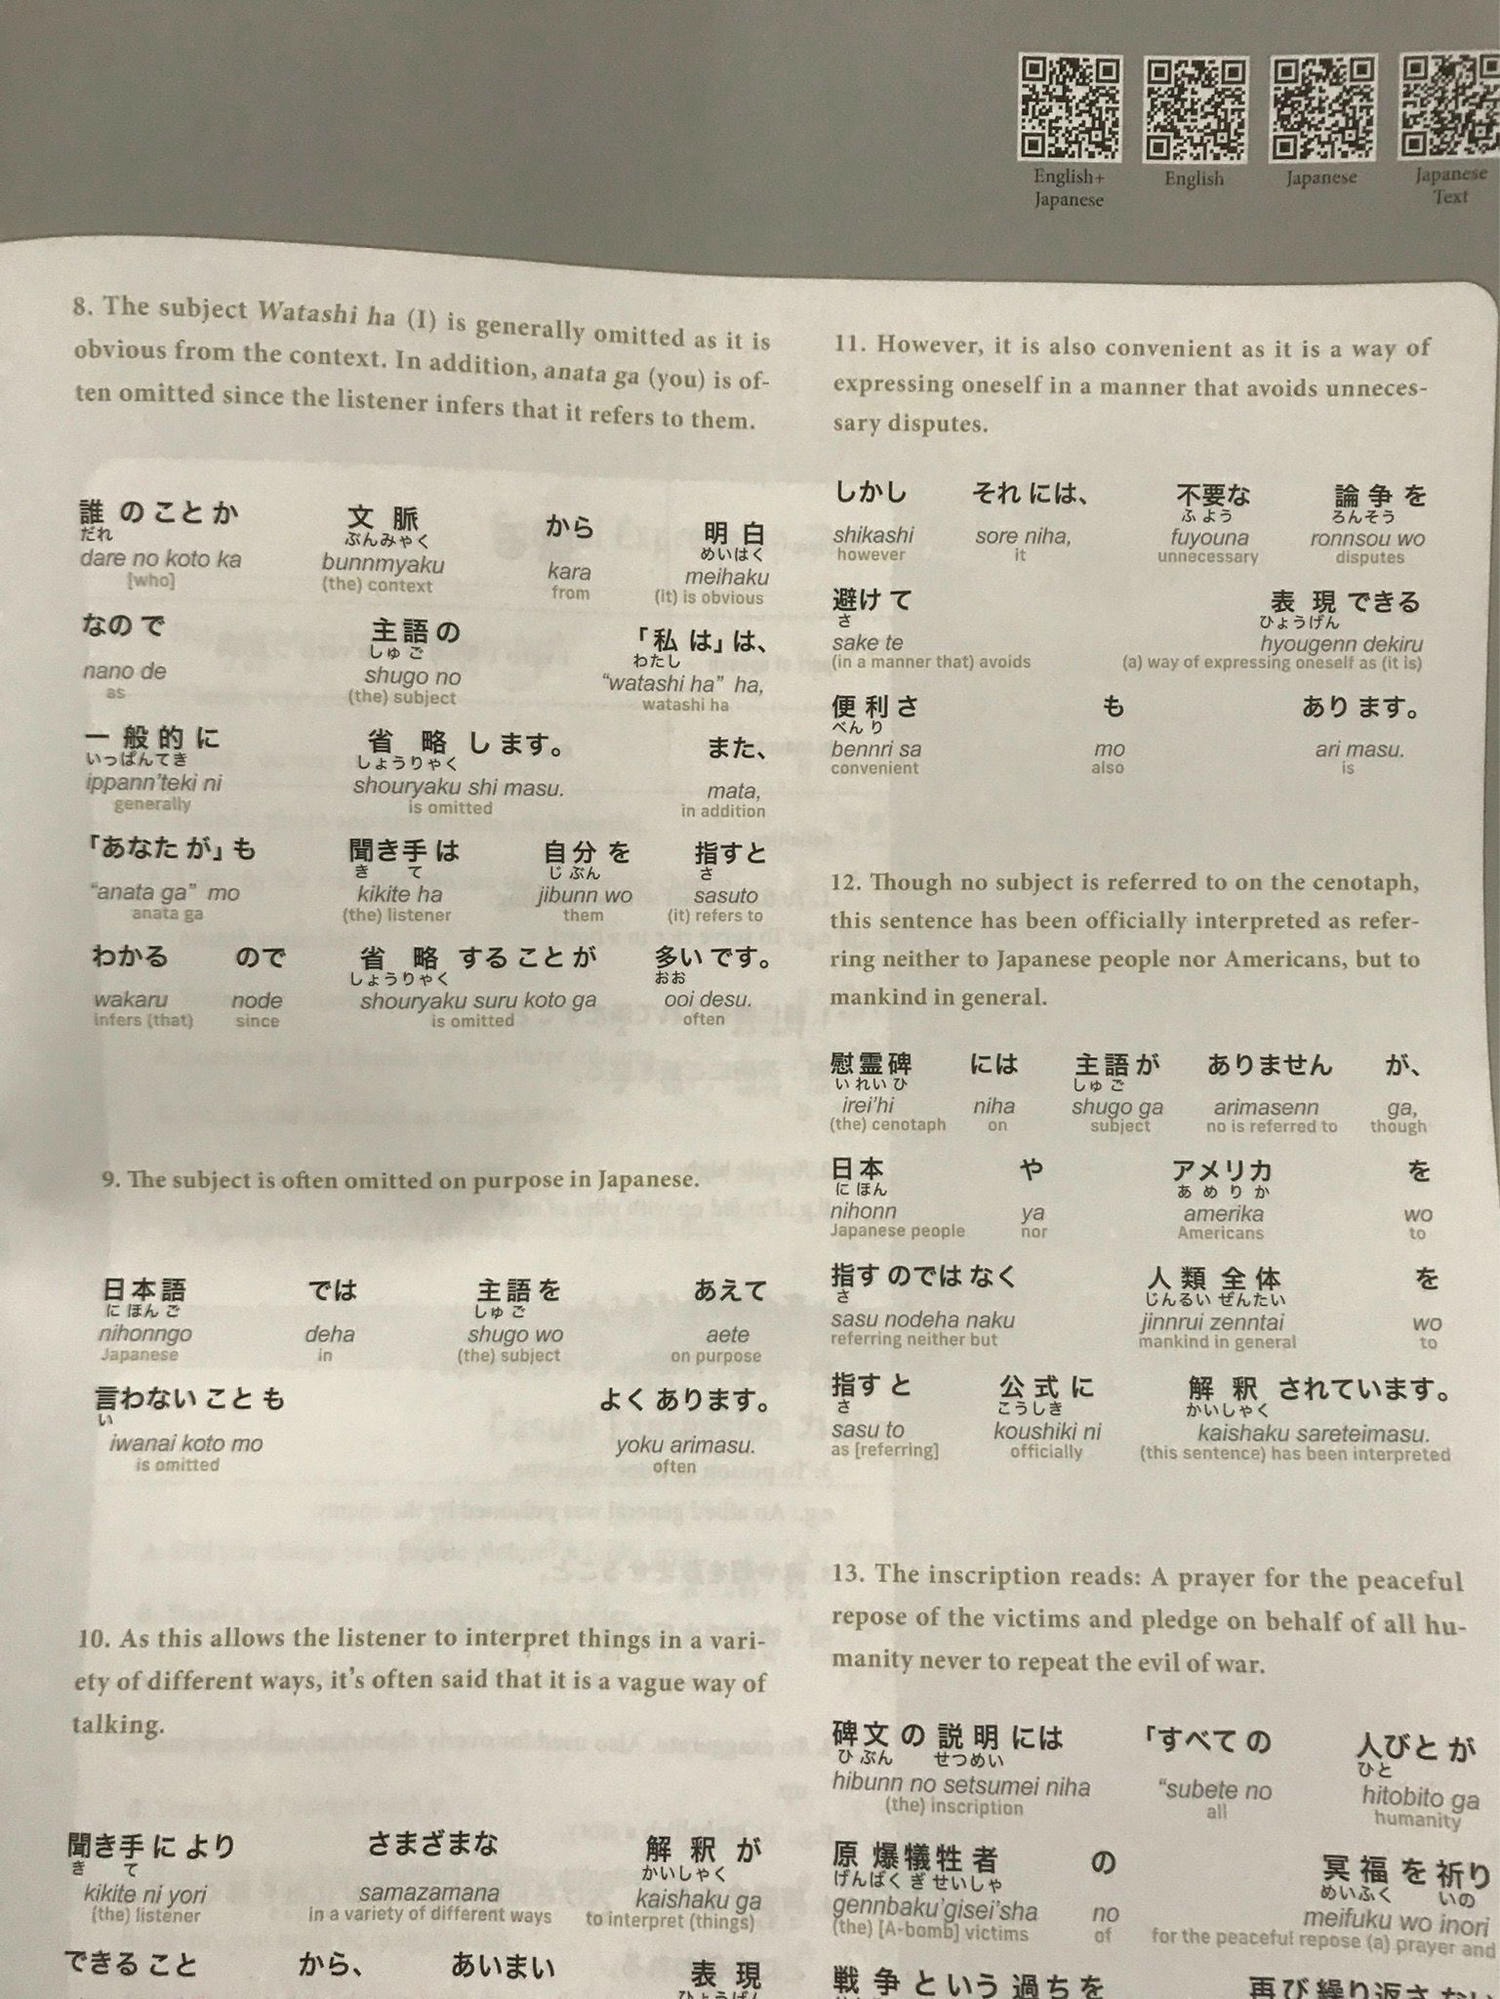 English+
Japanese
English
Japanese
Japanese
Text
8. The subject Watashi ha (I) is generally omitted as it is
obvious from the context. In addition, anata ga (you) is of-
ten omitted since the listener infers that it refers to them.
誰のことか 文脈 から 明白
だれ ぶんみゃく めいはく
dare no koto ka bunnmyaku kara meihaku
[who] (the) context from (it) is obvious
なので 主語の 「私は」は、
しゅご わたし
nano de shugo no “watashi ha” ha,
as (the) subject watashi ha
一般的に 省略します。 また、
いっぱんてき しょうりゃく
ippann'teki ni shouryaku shi masu. mata,
generally is omitted in addition
「あなたが」も 聞き手は 自分を 指すと
き て じぶん さ
“anata ga” mo kikite ha jibunn wo sasuto
anata ga (the) listener them (it) refers to
わかる ので 省略することが 多いです。
しょうりゃく おお
wakaru node shouryaku suru koto ga ooi desu.
infers (that) since is omitted often
9. The subject is often omitted on purpose in Japanese.
日本語 では 主語を あえて
にほんご しゅご
nihonngo deha shugo wo aete
Japanese in (the) subject on purpose
言わないことも よくあります。
い
iwanai koto mo yoku arimasu.
is omitted often
10. As this allows the listener to interpret things in a vari-
ety of different ways, it's often said that it is a vague way of
talking.
聞き手により さまざまな 解釈が
き て かいしゃく
kikite ni yori samazamana kaishaku ga
(the) listener in a variety of different ways to interpret (things)
できること から、 あいまい 表現
ひょうげん
11. However, it is also convenient as it is a way of
expressing oneself in a manner that avoids unneces-
sary disputes.
しかし それには、 不要な 論争を
ふよう ろんそう
shikashi sore niha, fuyouna ronnsou wo
however it unnecessary disputes
避けて 表現できる
さ ひょうげん
sake te hyougenn dekiru
(in a manner that) avoids (a) way of expressing oneself as (it is)
便利さ も あります。
べんり
bennri sa mo ari masu.
convenient also is
12. Though no subject is referred to on the cenotaph,
this sentence has been officially interpreted as refer-
ring neither to Japanese people nor Americans, but to
mankind in general.
慰霊碑 には 主語が ありません が、
いれいひ しゅご
irei'hi niha shugo ga arimasenn ga,
(the) cenotaph on subject no is referred to though
日本 や アメリカ を
にほん あめりか
nihonn ya amerika wo
Japanese people nor Americans to
指すのではなく 人類全体 を
さ じんるい ぜんたい
sasu nodeha naku jinnrui zenntai wo
referring neither but mankind in general to
指すと 公式に 解釈されています。
さ こうしき かいしゃく
sasu to koushiki ni kaishaku sareteimasu.
as [referring] officially (this sentence) has been interpreted
13. The inscription reads: A prayer for the peaceful
repose of the victims and pledge on behalf of all hu-
manity never to repeat the evil of war.
碑文の説明には 「すべての 人びとが
ひぶん せつめい ひと
hibunn no setsumei niha “subete no hitobito ga
(the) inscription all humanity
原爆犠牲者 の 冥福を祈り
げんばく ぎせいしゃ めいふく いの
gennbaku'gisei'sha no meifuku wo inori
(the) [A-bomb] victims of for the peaceful repose (a) prayer and
戦争という過ちを 再び繰り返さない